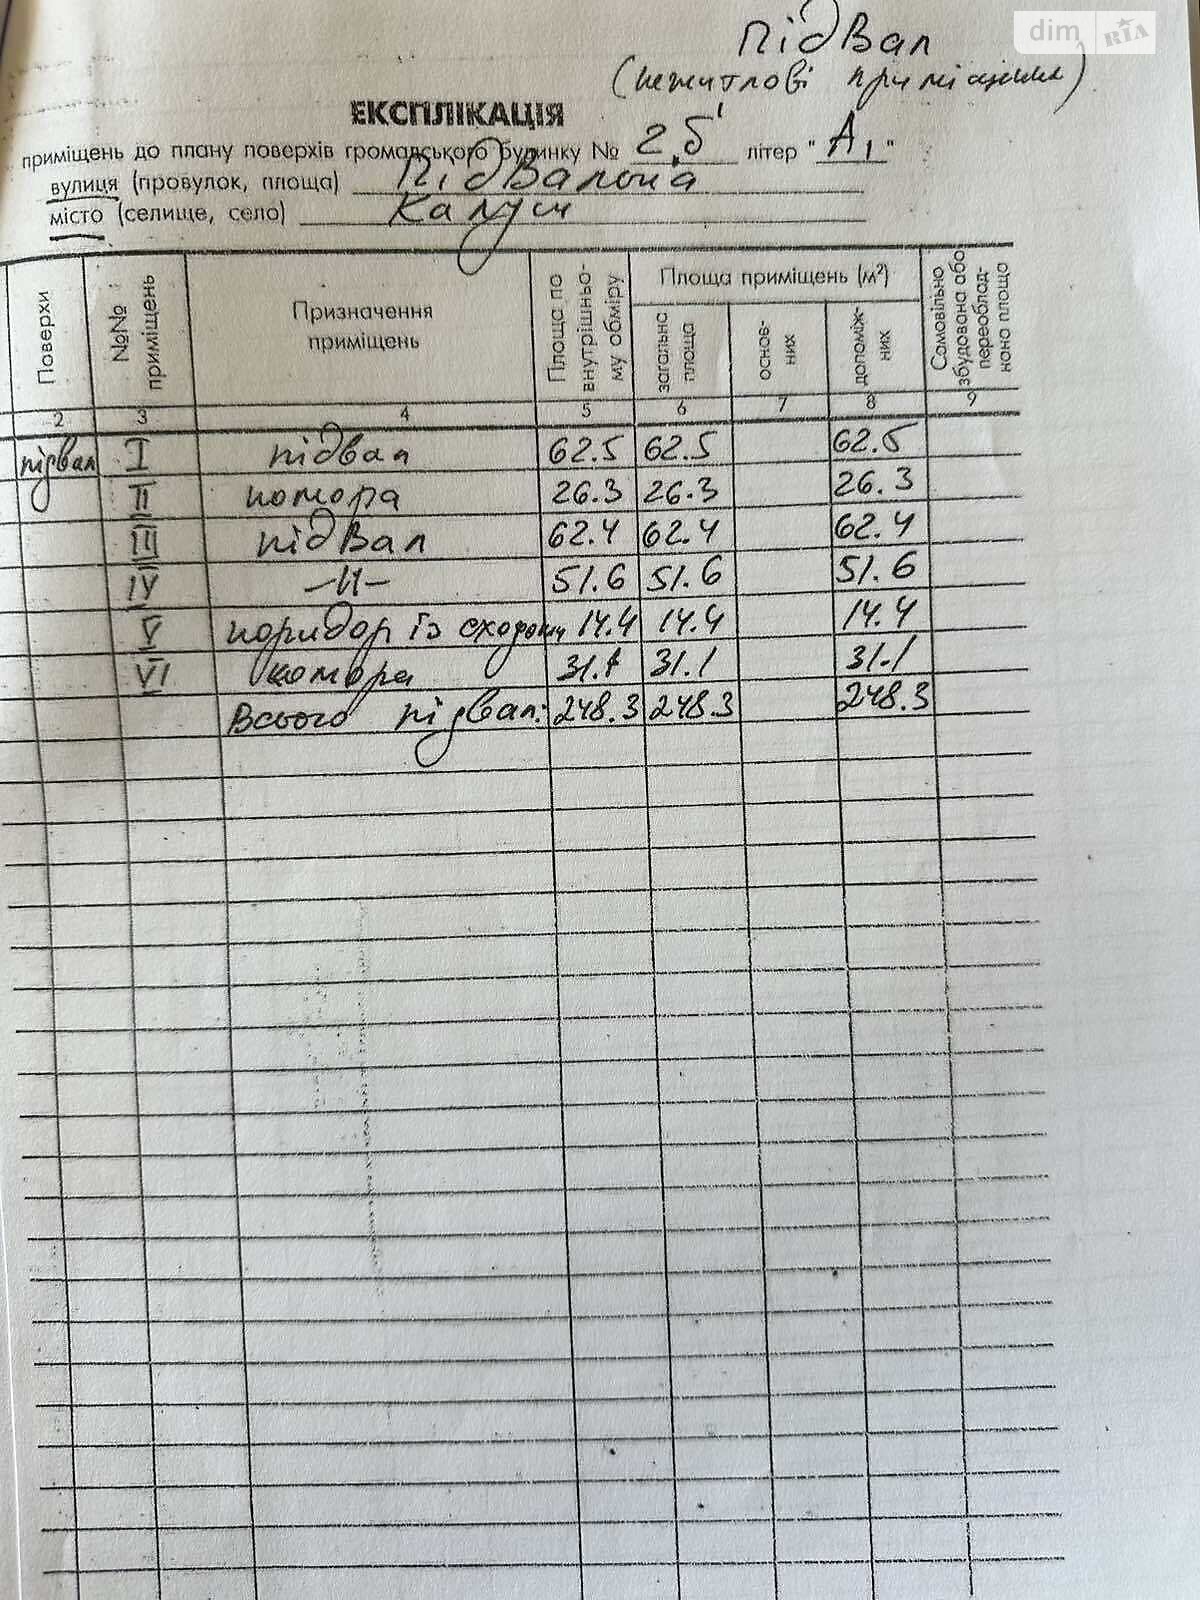 dim RIA
підвал
(нежитлові приміщення)
ЕКСПЛІКАЦІЯ
приміщень до плану поверхів громадського будинку № літер "А₁"
вулиця (провулок, площа) Підвальна
місто (селище, село) Калуш
Поверхи №№ приміщень Призначення приміщень Площа по внутрішньо-му обміру Площа приміщень (м²) загальна площа основ-них допоміж-них Самовільно збудована або переоблад-нана площа
2 3 4 5 6 7 8 9
підвал I підвал 62.5 62.5 62.5
II комора 26.3 26.3 26.3
III підвал 62.4 62.4 62.4
IV —II— 51.6 51.6 51.6
V коридор із сходами 14.4 14.4 14.4
VI комора 31.1 31.1 31.1
Всього підвал: 248.3 248.3 248.3